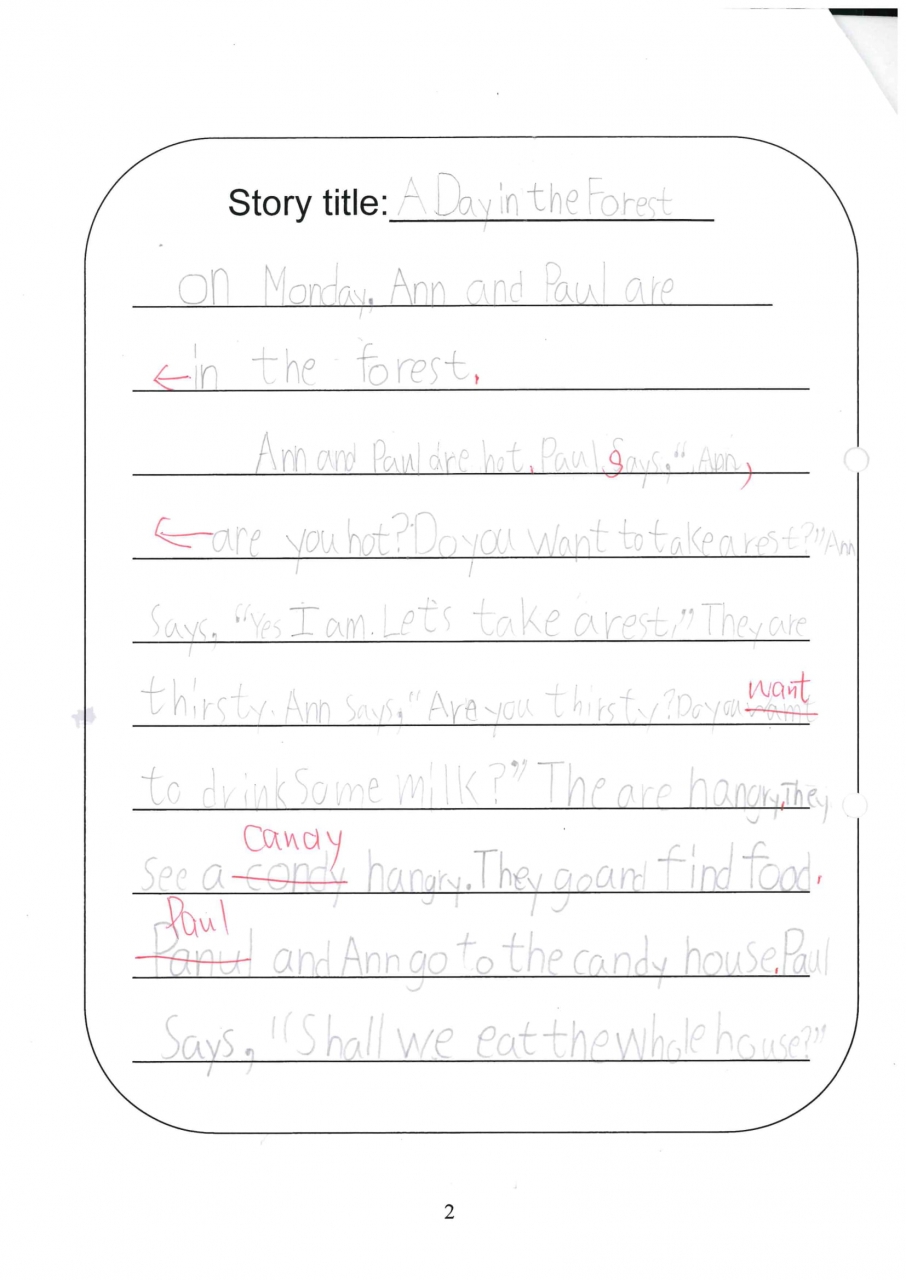 Story title: A Day in the Forest
on Monday, Ann and Paul are
in the forest.
Ann and Paul are hot. Paul Says, "Ann,
are you hot? Do you want to take a rest?" Ann
Says, "Yes I am. Let's take a rest." They are
thirsty. Ann Says, "Are you thirsty? Do you want
to drink Some milk?" The are hangry. They
candy
see a condy hangry. They go and find food.
Paul
Panul and Ann go to the candy house. Paul
Says, "Shall we eat the whole house?"
2